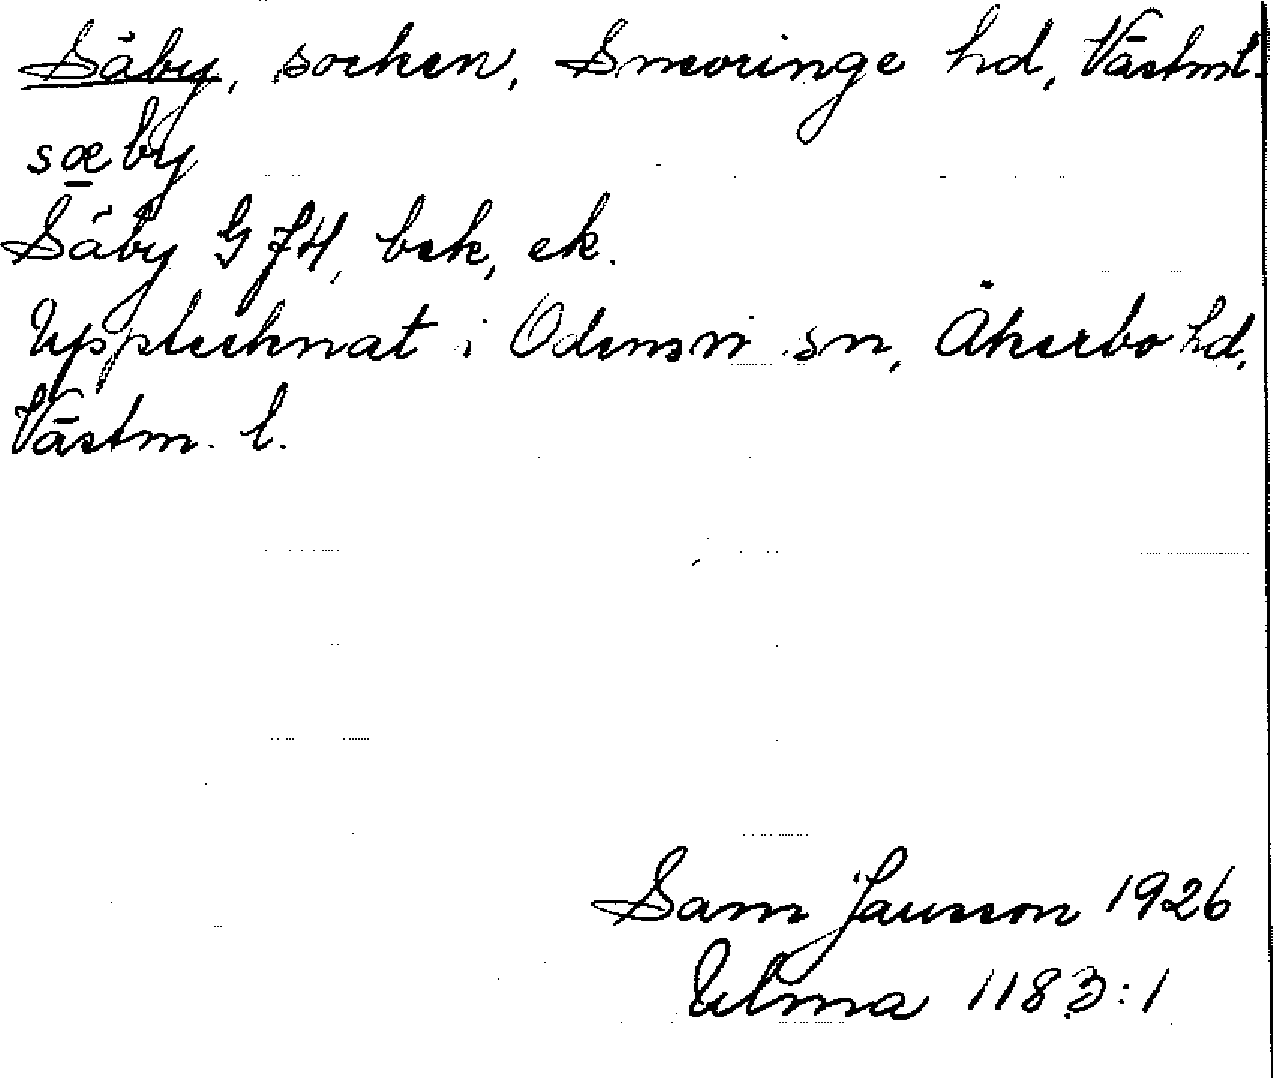 Säby, socken, Snevringe hd, Västml.
sæby
Säby G 74, bek, ek.
Upptecknat i Odensvi sn, Åkerbo hd,
Västm. l.
Sam Jansson 1926
Ulma 1183:1